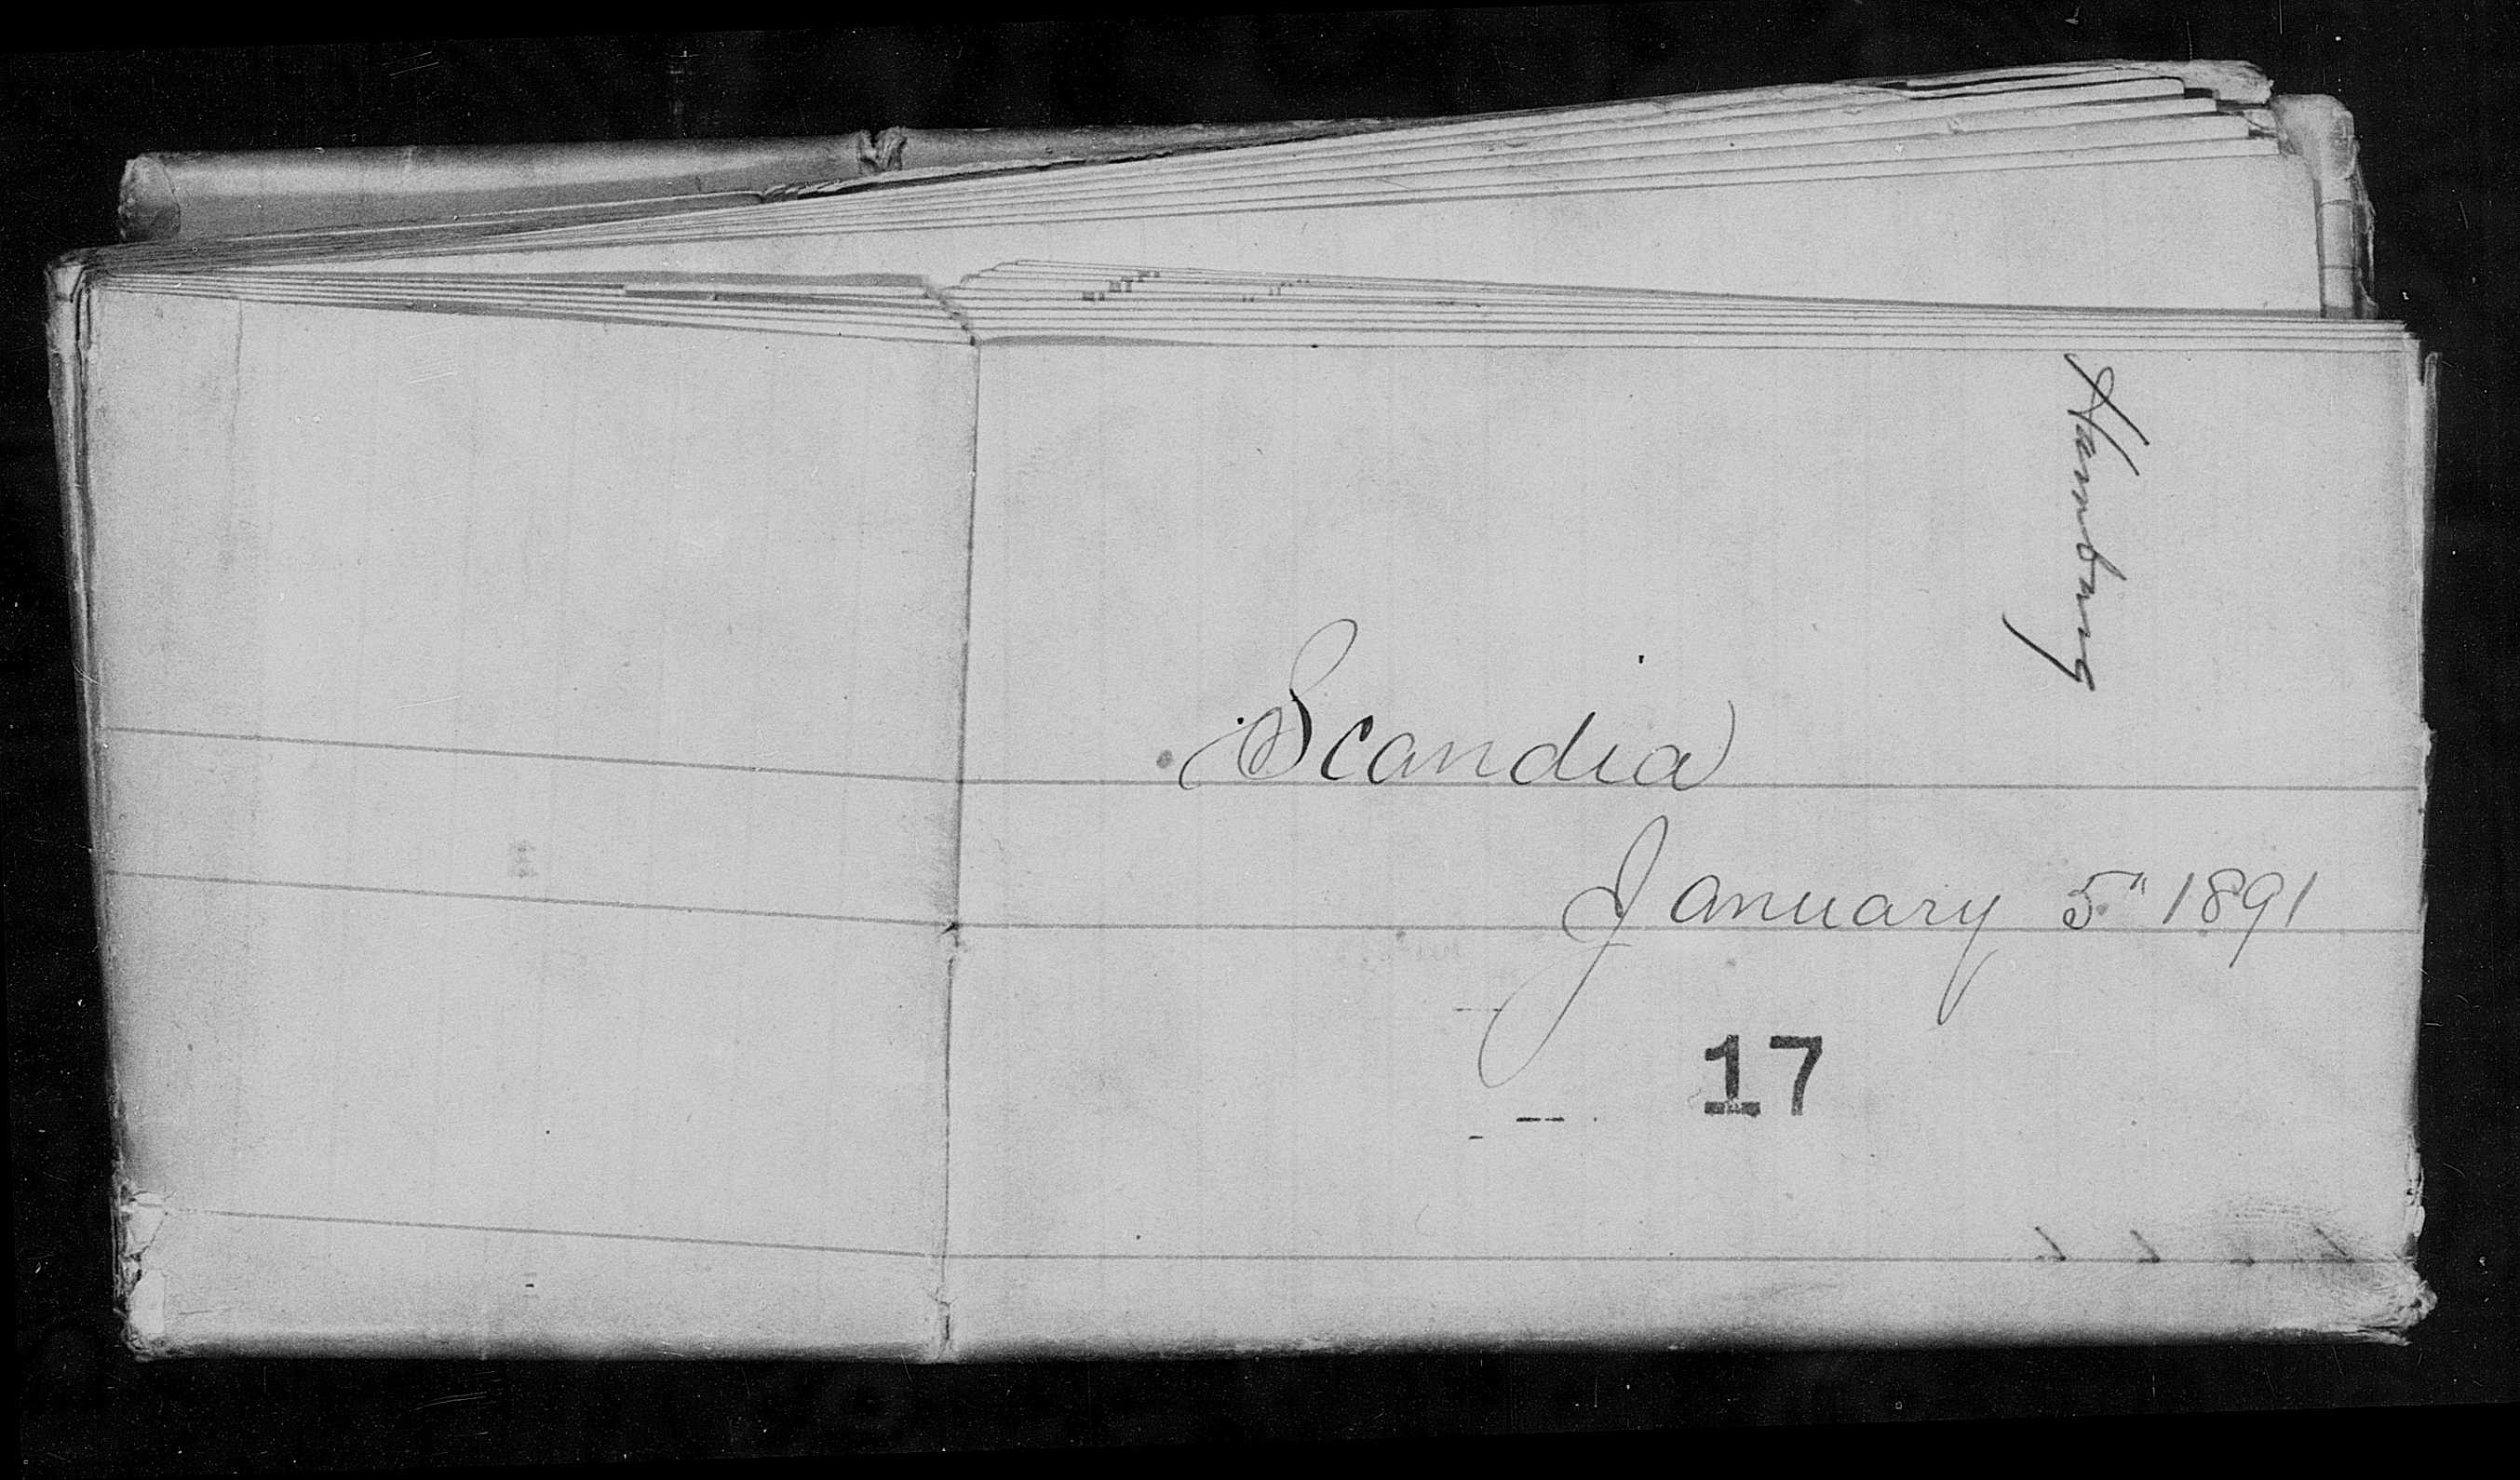 Hamburg
Scandia
January 5" 1891
17